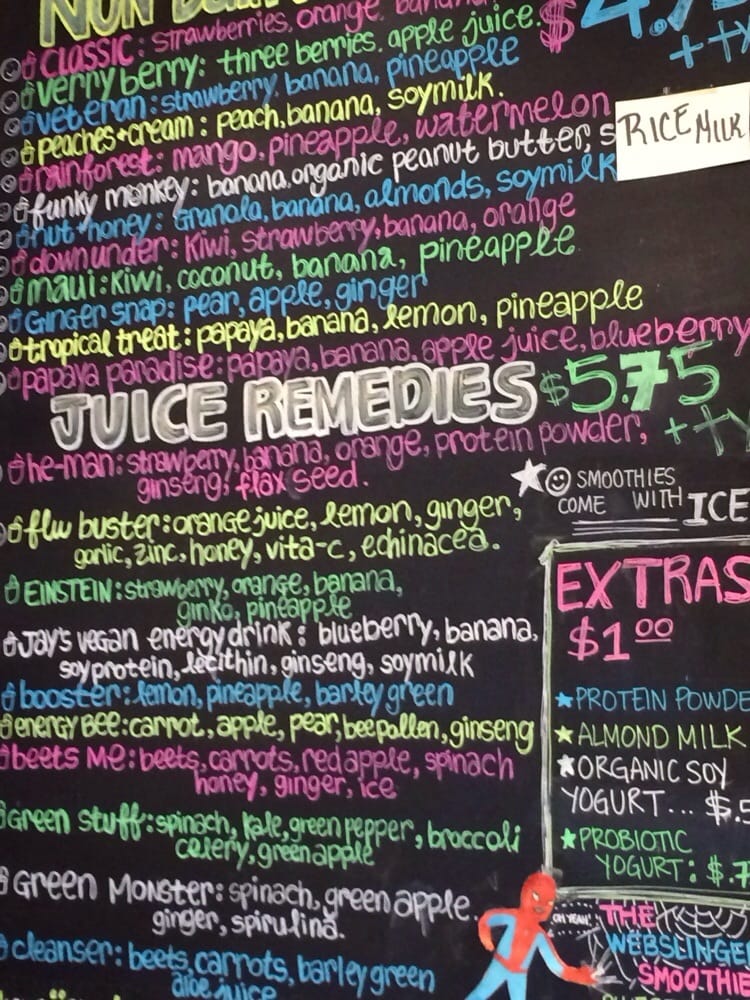 NON
CLASSIC: strawberries, orange, banana
verry berry: three berries, apple juice. $4.75
veteran: strawberry, banana, pineapple ++ty
peaches+cream: peach, banana, soymilk.
rainforest: mango, pineapple, watermelon
funky monkey: banana, organic peanut butter, s RICE MILK
nut honey: Granola, banana, almonds, soymilk
downunder: Kiwi, strawberry, banana, orange
maui: Kiwi, coconut, banana, pineapple
GINGER SNAP: pear, apple, ginger
tropical treat: papaya, banana, lemon, pineapple
papaya paradise: papaya, banana, apple juice, blueberry
JUICE REMEDIES $5.75
he-man: strawberry, banana, orange, protein powder, ++ty
ginseng, flax seed.
flu buster: orange juice, lemon, ginger,
garlic, zinc, honey, vita-c, echinacea.
EINSTEIN: strawberry, orange, banana,
ginko, pineapple
Jay's vegan energy drink: blueberry, banana,
soy protein, lecithin, ginseng, soymilk
booster: lemon, pineapple, barley green
energy Bee: carrot, apple, pear, beepollen, ginseng
beets Me: beets, carrots, red apple, spinach
honey, ginger, ice
Green stuff: spinach, kale, green pepper, broccoli
celery, green apple
Green Monster: spinach, green apple
ginger, spirulina.
cleanser: beets, carrots, barley green
aloe juice
SMOOTHIES
COME WITH ICE
EXTRAS
$1.00
PROTEIN POWDE
ALMOND MILK
ORGANIC SOY
YOGURT... $.5
PROBIOTIC
YOGURT: $.7
OH YEAH!
THE
WEBSLINGE
SMOOTHIE